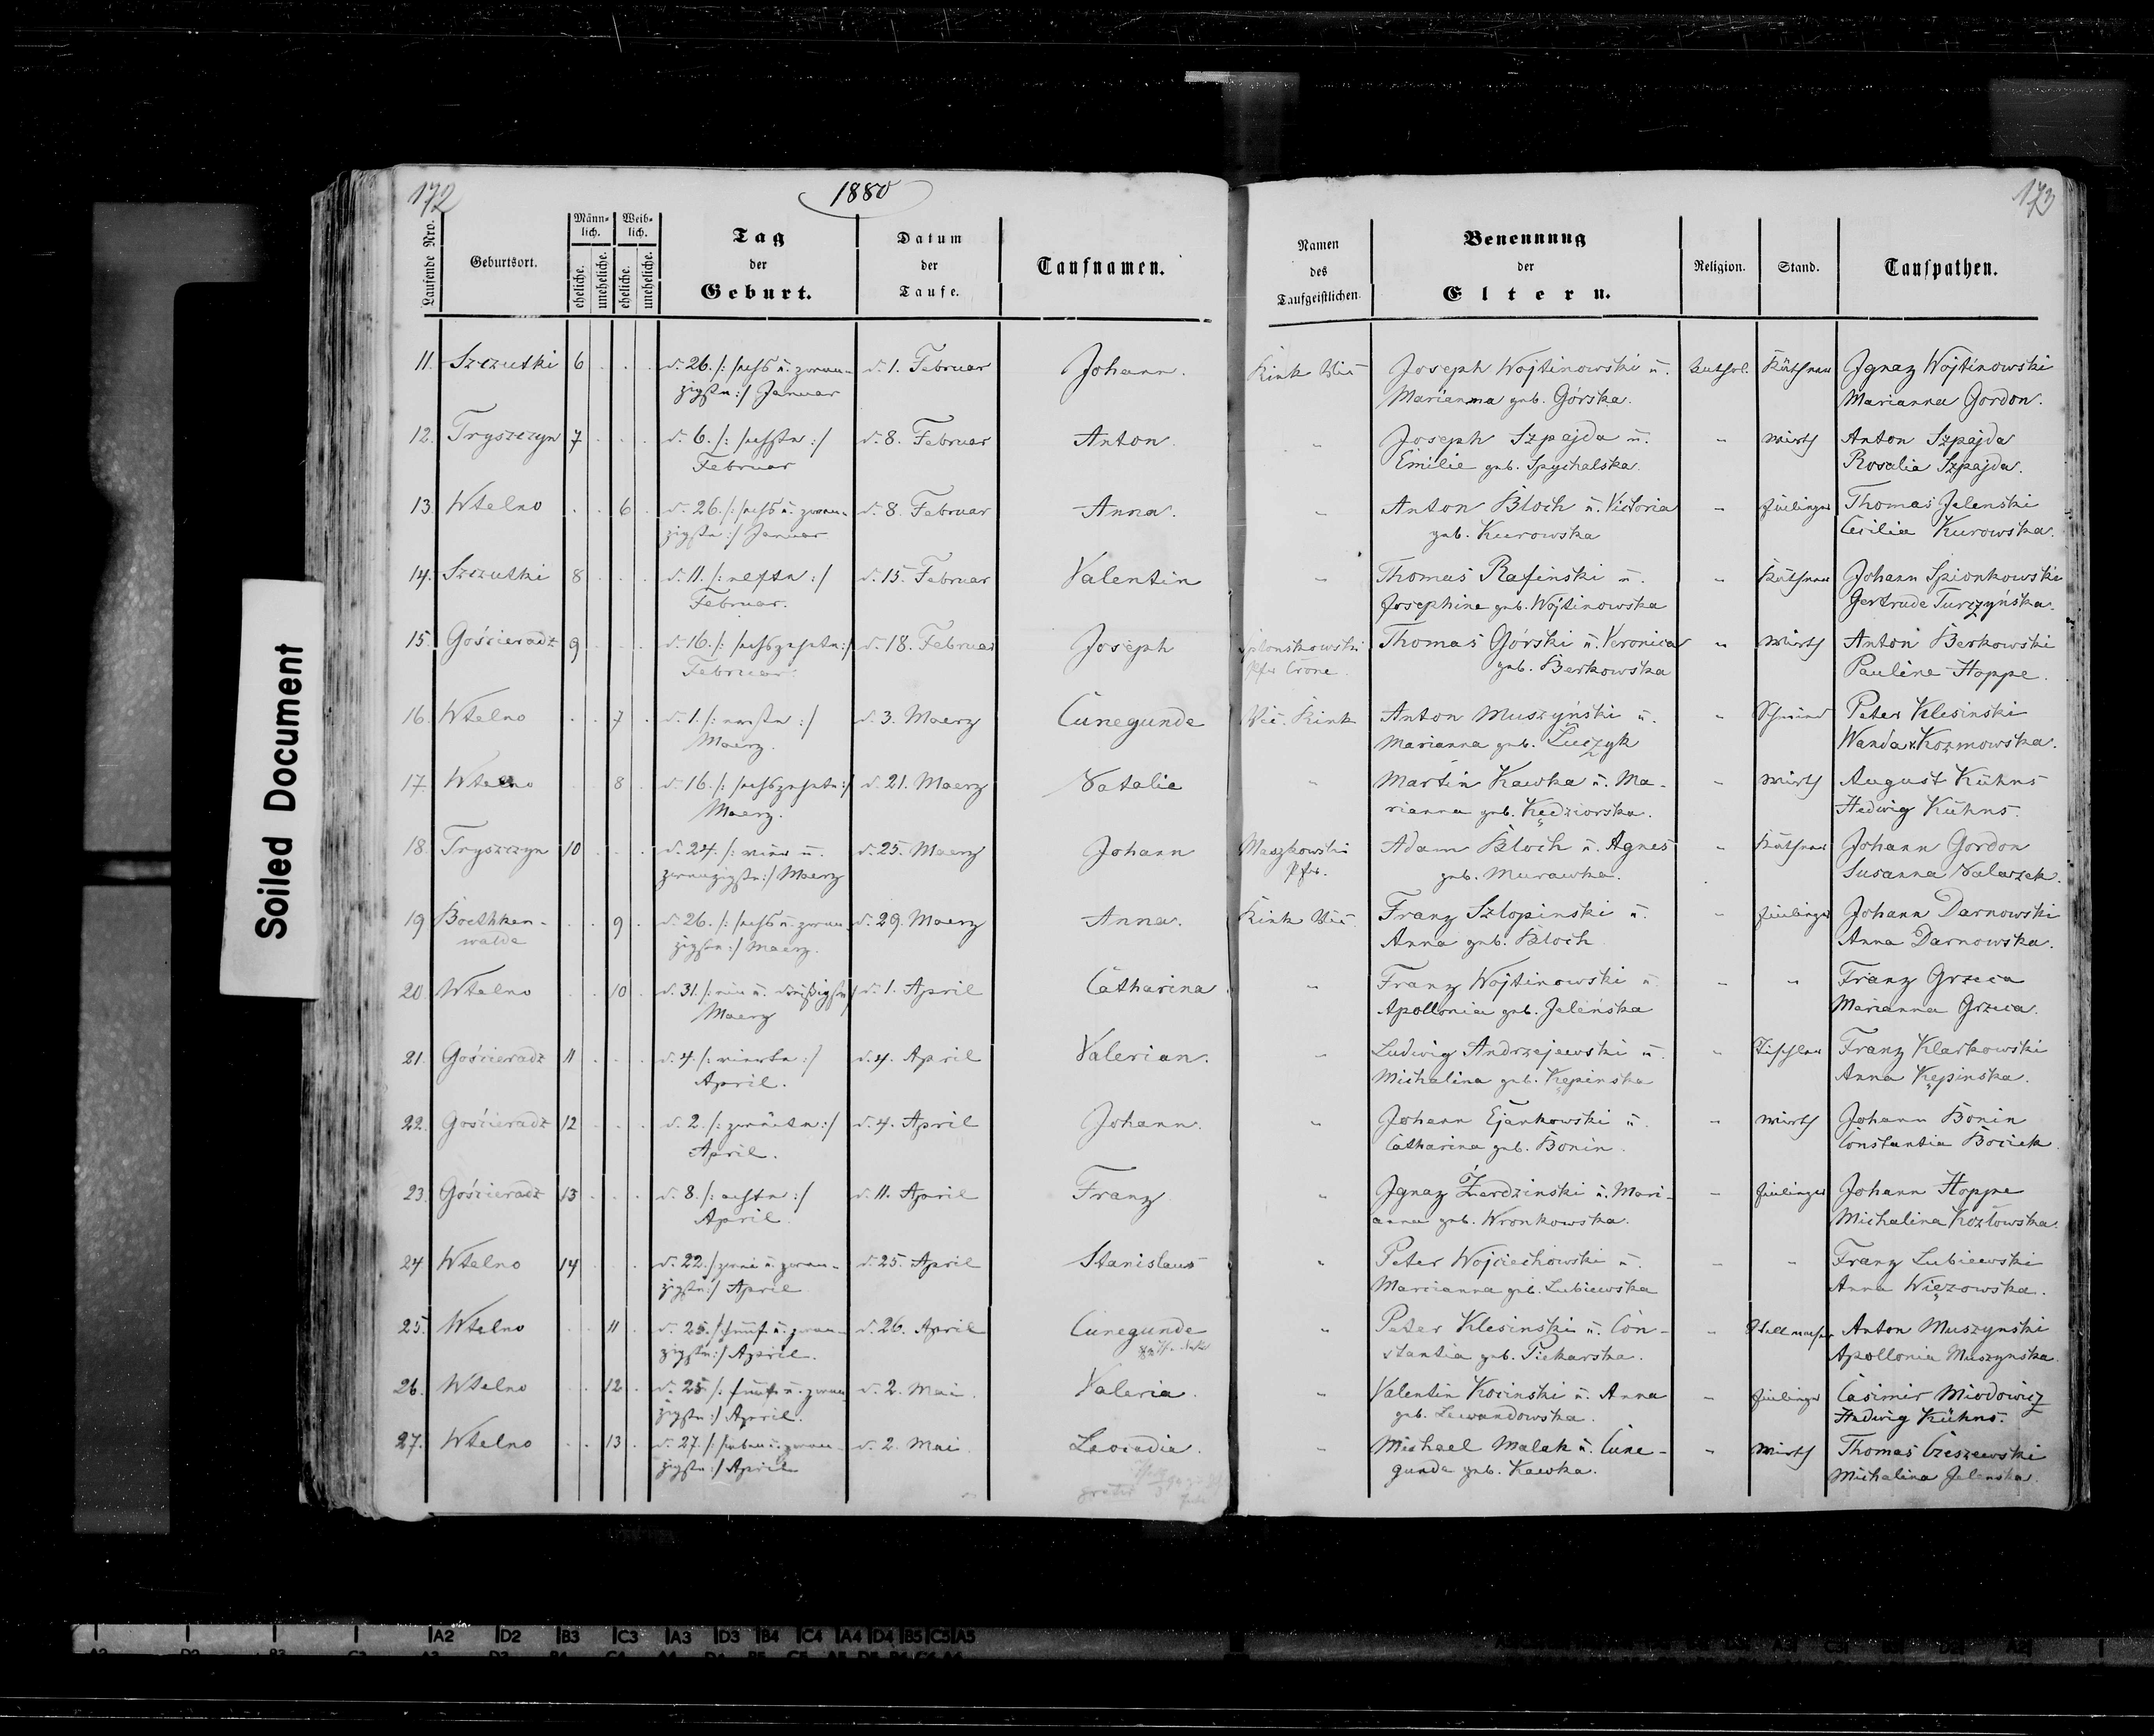 172
1880
173
Laufende Nro.
Geburtsort.
Männ-
lich.
Weib-
lich.
eheliche.
uneheliche.
eheliche.
uneheliche.
Tag
der
Geburt.
Datum
der
Taufe.
Taufnamen.
Namen
des
Taufgeistlichen.
Benennung
der
Eltern.
Religion.
Stand.
Taufpathen.
11. Szczutki 6 . . . d. 26. /: sechs u. zwan- d. 1. Februar Johann. Kink Vic Joseph Wojtinowski u. kathol. Käthner Ignaz Wojtinowski
zigsten :/ Januar Marianna geb. Górska. Marianna Gordon.
12. Tryszczyn 7 . . . d. 6. /: sechsten :/ d. 8. Februar Anton " Joseph Szpajda u. " Wirth Anton Szpajda
Februar Emilie geb. Spychalska. Rosalia Szpajda.
13. Wtelno . . 6 . d. 26. /: sechs u. zwan- d. 8. Februar Anna. " Anton Bloch u. Victoria " Einlieger Thomas Jelenski
zigsten :/ Januar geb. Kurowska Cecilia Kurowska.
14. Szczutki 8 . . . d. 11. /: elften :/ d. 15. Februar Valentin " Thomas Rafinski u. " Käthner Johann Spionkowski
Februar. Josephine geb. Wojtinowska Gertrude Turczyńska.
15. Gościeradz 9 . . . d. 16. /: sechszehnten :/ d. 18. Februar Joseph Splonskowski Thomas Górski u. Veronica " Wirth Anton Berkowski
Februar. Pfr Crone. geb. Berkowska Pauline Hoppe.
16. Wtelno . . 7 . d. 1. /: ersten :/ d. 3. Maerz Cunegunde Vic. Kink Anton Muszyński u. " Schmied Peter Klesinski
Maerz. Marianna geb. Luczyk Wanda v. Kozmowska.
17. Wtelno 8 . d. 16. /: sechszehnten :/ d. 21. Maerz Natalie " Martin Kawka u. Ma- " Wirth August Kühns
Maerz. rianna geb. Kędziorska. Hedwig Kühns.
18. Tryszczyn 10 . . . d. 24. /: vier u. d. 25. Maerz Johann Maszkowski Adam Bloch u. Agnes " Käthner Johann Gordon
zwanzigsten :/ Maerz Pfr. geb. Murawka. Susanna Nalazek.
19 Boethken- . . 9 . d. 26. /: sechs u. zwan- d. 29. Maerz Anna. Kink Vic Franz Szlopinski u. " Einlieger Johann Darnowski
walde zigsten :/ Maerz. Anna geb. Bloch Anna Darnowska.
20. Wtelno . . 10 . d. 31. /: ein u. dreißigsten :/ d. 1. April Catharina " Franz Wojtinowski u. " " Franz Grzeca
Maerz Apollonia geb. Jeleńska Marianna Grzeca.
21. Gościeradz 11 . . . d. 4. /: vierten :/ d. 4. April Valerian. " Ludwig Andrzejewski u. " Tischler Franz Klarkowski
April. Michalina geb. Kępinska Anna Kępinska.
22. Gościeradz 12 . . . d. 2. /: zweiten :/ d. 4. April Johann. " Johann Ejankowski u. " Wirth Johann Bonin
April. Catharina geb. Bonin. Constantia Bociek.
23. Gościeradz 13 . . . d. 8. /: achten :/ d. 11. April Franz " Ignaz Żerdzinski u. Mari- " Einlieger Johann Hoppe
April. anna geb. Wronkowska. Michalina Kozlowska.
24 Wtelno 14 . . . d. 22. /: zwei u. zwan- d. 25. April Stanislaus " Peter Wojciechowski u. " " Franz Lubiewski
zigsten :/ April Marianna geb. Lubiewska Anna Więzowska.
25. Wtelno . . 11 . d. 25. /: fünf u. zwan- d. 26. April Cunegunde " Peter Klesinski u. Con- " Anton Muszynski
zigsten :/ April. stantia geb. Piekarska. Apollonia Muszynska.
26. Wtelno . . 12 . d. 25. /: fünf u. zwan- d. 2. Mai. Valeria. " Valentin Kosinski u. Anna " Einlieger Casimir Miodowicz
zigsten :/ April. geb. Lewandowska. Hedwig Kühns.
27. Wtelno . . 13 . d. 27. /: sieben u. zwan- d. 2. Mai. Leocadia. " Michael Malak u. Cune- " Wirth Thomas Czeszewski
zigsten :/ April gunde geb. Kawka. Michalina Jelenska.
Soiled Document
A2 D2 B3 C3 A3 D3 B4 C4 A4 D4 B5 C5 A5